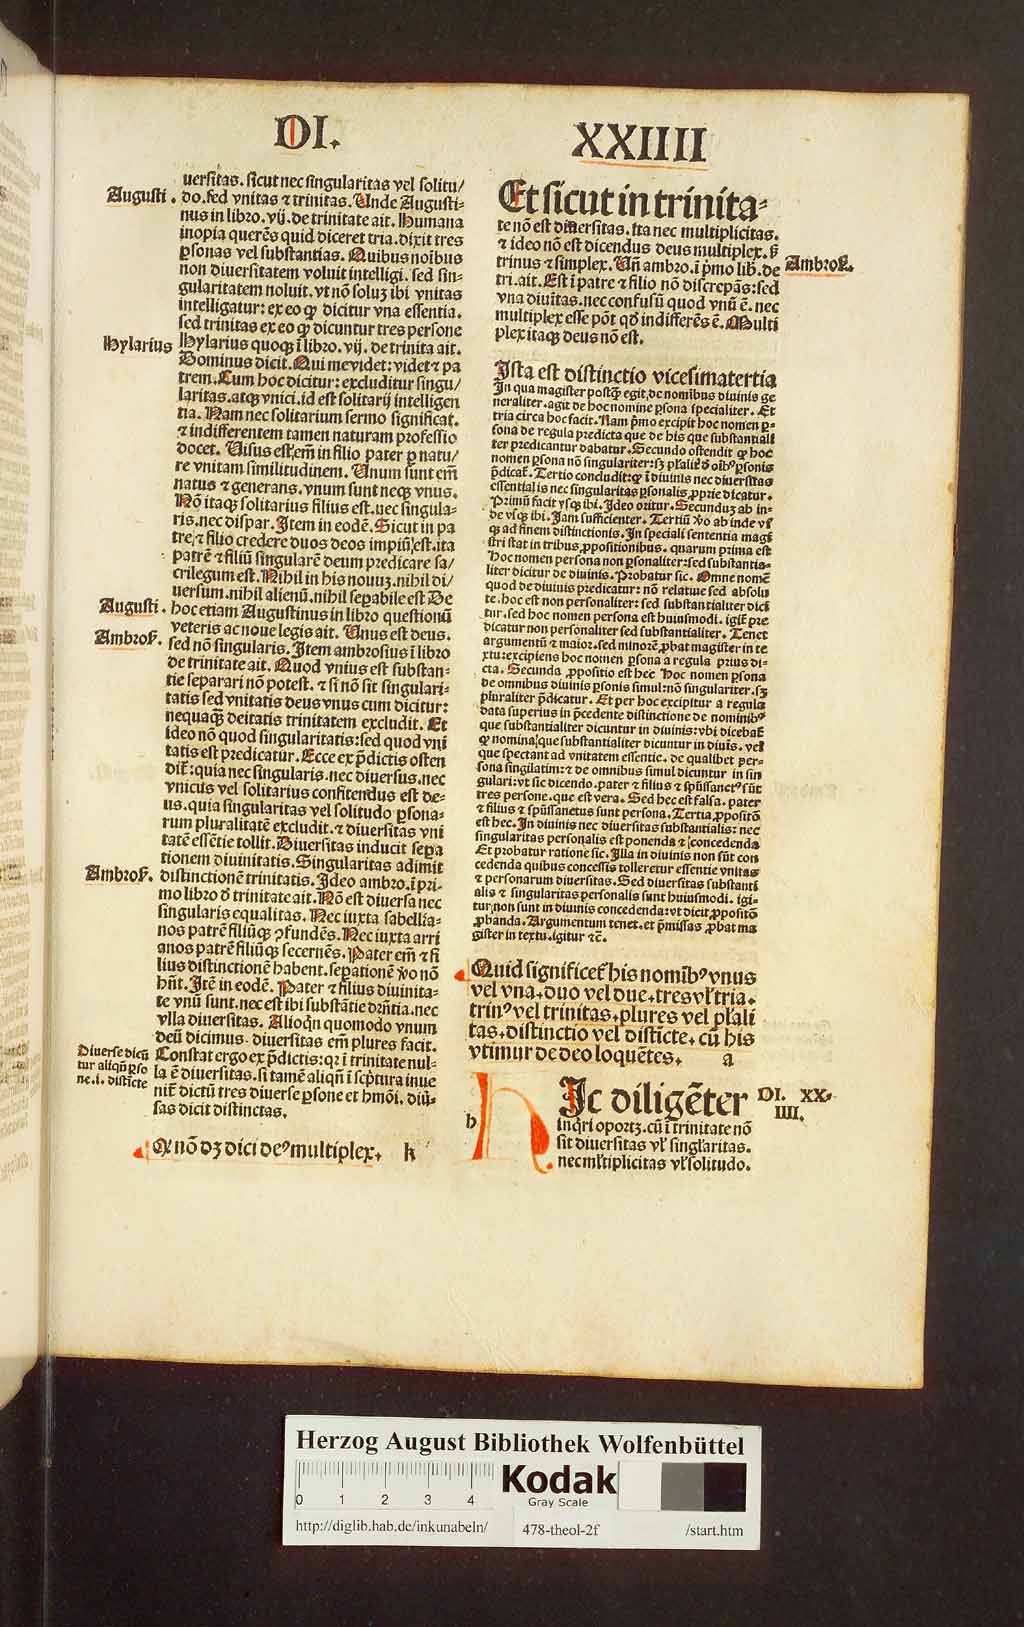 DI.
XXIIII
uersitas. sicut nec singularitas vel solitu/
Augusti.
do. sed vnitas ⁊ trinitas. Unde Augusti-
nus in libro. vij. de trinitate ait. Humana
inopia querēs quid diceret tria. dixit tres
ꝑsonas vel substantias. Quibus noībus
non diuersitatem voluit intelligi. sed sin-
gularitatem noluit. vt nō soluꝫ ibi vnitas
intelligatur: ex eo ꝙ dicitur vna essentia.
sed trinitas ex eo ꝙ dicuntur tres persone
Hylarius
Hylarius quoqꝫ ī libro. vij. de trinita ait.
Dominus dicit. Qui me videt: videt ⁊ pa
trem. Cum hoc dicitur: excluditur singu/
laritas. atqꝫ vnici. id est solitarij intelligen
tia. Nam nec solitarium sermo significat.
⁊ indifferentem tamen naturam professio
docet. Uisus est em̄ in filio pater ꝑ natu/
re vnitam similitudinem. Unum sunt em̄
natus ⁊ generans. vnum sunt neqꝫ vnus.
Nō itaqꝫ solitarius filius est. nec singula-
ris. nec dispar. Item in eodē. Sicut in pa
tre, ⁊ filio credere duos deos impiū est. ita
patrē ⁊ filiū singularē deum predicare sa/
crilegum est. Nihil in his nouuꝫ. nihil di/
uersum. nihil alienū. nihil seꝑabile est De
Augusti.
hoc etiam Augustinus in libro questionū
veteris ac noue legis ait. Unus est deus.
Ambroẜ.
sed nō singularis. Item ambrosius ī libro
de trinitate ait. Quod vnius est substan-
tie separari nō potest. ⁊ si nō sit singulari-
tatis sed vnitatis deus vnus cum dicitur:
nequaqꝫ deitatis trinitatem excludit. Et
ideo nō quod singularitatis: sed quod vni
tatis est predicatur. Ecce ex p̄dictis osten
dit̄: quia nec singularis. nec diuersus. nec
vnicus vel solitarius confitendus est de-
us. quia singularitas vel solitudo ꝑsona-
rum pluralitatē excludit. ⁊ diuersitas vni
tatē essētie tollit. Diuersitas inducit seꝑa
tionem diuinitatis. Singularitas adimit
Ambroẜ.
distinctionē trinitatis. Ideo ambro. ī pri-
mo libro đ trinitate ait. Nō est diuersa nec
singularis equalitas. Nec iuxta sabellia-
nos patrē filiūqꝫ ꝯfundēs. Nec iuxta arri
anos patrē filiūqꝫ secernēs. Pater em̄ ⁊ fi
lius distinctionē habent. seꝑationē v̄o nō
hn̄t. Itē in eodē. Pater ⁊ filius diuinita-
te vnū sunt. nec est ibi substātie dr̄ntia. nec
vlla diuersitas. Alioqn̄ quomodo vnum
deū dicimus. diuersitas em̄ plures facit.
Diuerse dicū
tur aliqn̄ ꝑso
ne. i. distīcte
Constat ergo ex p̄dictis: qꝫ ī trinitate nul-
la ē diuersitas. si tamē aliqn̄ ī scptura inue
nit̄ dictū tres diuerse ꝑsone ⁊ hmōi. diū-
sas dicit distinctas.
Qꝫ nō dꝫ dici deꝰ multiplex. k
Et sicut in trinita-
te nō est diuersitas. ita nec multiplicitas.
⁊ ideo nō est dicendus deus multiplex. ẜ
trinus ⁊ simplex. Un̄ ambro. ī p̄mo lib. de
Ambroẜ.
tri. ait. Est ī patre ⁊ filio nō discrepās: sed
vna diuītas. nec confusū quod vnū ē. nec
multiplex esse pōt qđ indifferēs ē. Multi
plex itaqꝫ deus nō est.
Ista est distinctio vicesimatertia
In qua magister postqꝫ egit, de nomībus diuinis ge
neraliter. agit de hoc nomine ꝑsona specialiter. Et
tria circa hoc facit. Nam p̄mo excipit hoc nomen ꝑ-
sona de regula predicta que de his que substantiali
ter predicantur dabatur. Secundo ostendit ꝙ hoc
nomen ꝑsona nō singulariter: sꝫ pl̄alit̄ đ oībꝰ ꝑsonis
p̄dicat̄. Tertio concludit: ꝙ ī diuinis nec diuersitas
essentialis nec singularitas ꝑsonalis, ꝓprie dicatur.
Primū facit vsqꝫ ibi. Ideo oritur. Secunduꝫ ab in-
de vsqꝫ ibi. Jam sufficienter. Tertiū v̄o ab inde vs̄
qꝫ ad finem distinctionis. In speciali sententia magi
stri stat in tribus, ꝓpositionibus. quarum prima est
Hoc nomen persona non ꝑsonaliter: sed substantia-
liter dicitur de diuinis. Probatur sic. Omne nomē
quod de diuinis predicatur: nō relatiue sed absolu
te. hoc est non personaliter: sed substantialiter dici
tur. sed hoc nomen persona est huiusmodi. igit̄ pre
dicatur non personaliter sed substantialiter. Tenet
argumentū ⁊ maior. sed minorē, ꝓbat magister in te
xtu: excipiens hoc nomen ꝑsona a regula prius di-
cta. Secunda ꝓpositio est hec. Hoc nomen ꝑsona
de omnibus diuinis ꝑsonis simul: nō singulariter. sꝫ
pluraliter p̄dicatur. Et per hoc excipitur a regula
data superius in p̄cedente distinctione de nominibꝰ
que substantialiter dicuntur in diuinis: vbi dicebat̄
ꝙ nomina, que substantialiter dicuntur in diuīs. vel
que spectant ad vnitatem essentie. de qualibet per-
sona singilatim: ⁊ de omnibus simul dicuntur in sin
gulari: vt sic dicendo. pater ⁊ filius ⁊ spūssanctꝰ sūt
tres persone. que est vera. Sed hec est falsa. pater
⁊ filius ⁊ spūssanctus sunt persona. Tertia, ꝓpositō
est hec. In diuinis nec diuersitas substantialis: nec
singularitas personalis est ponenda ⁊ concedenda
Et probatur ratione sic. Illa in diuinis non sūt con
cedenda quibus concessis tolleretur essentie vnitas
⁊ personarum diuersitas. Sed diuersitas substanti
alis ⁊ singularitas personalis sunt huiusmodi. igi-
tur, non sunt in diuinis concedenda: vt dicit, ꝓpositō
ꝓbanda. Argumentum tenet. et p̄missas ꝓbat ma
gister in textu. igitur ⁊c̄.
Quid significet̄ his nomībꝰ vnus
vel vna. duo vel due. tres vl̄ tria.
trinꝰ vel trinitas. plures vel pl̄ali
tas. distinctio vel distīcte. cū his
vtimur de deo loquētes. a
h
Ic diligēter
DI. XX-
IIII.
inq̄ri oportꝫ. cū ī trinitate nō
sit diuersitas vl̄ singl̄aritas.
nec ml̄tiplicitas vl̄ solitudo.
Herzog August Bibliothek Wolfenbüttel
0 1 2 3 4
Kodak
Gray Scale
http://diglib.hab.de/inkunabeln/ 478-theol-2f /start.htm